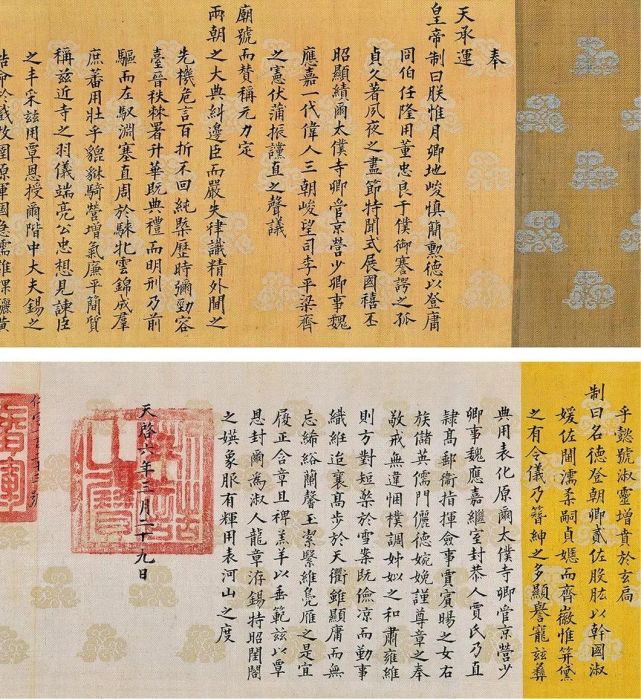 奉
天承運
皇帝制曰朕惟月卿地峻慎簡勲德以登庸
冏伯任隆用董忠良于僕御謇諤之孤
貞久著夙夜之盡節特聞式展國禧丕
昭顯績爾太僕寺卿管京營少卿事魏
應嘉一代偉人三朝峻望司李平梁齊
之憲伏蒲振讜直之聲議
廟號而贊稱元力定
兩朝之大典糾邊臣而嚴失律識精外閫之
先機危言百折不回純槩歷時彌勁容
臺晉秩棘署升華既典禮而明刑乃前
驅而左馭淵塞直周於騋牝雲錦成羣
庶蕃用壯乎貔貅騎營增氣廉平簡質
稱茲近寺之羽儀端亮公忠想見諫臣
之丰采茲用覃恩授爾階中大夫錫之
誥命於戲改圉原軍國急需雖驪黃
乎懿號淑靈增貴於玄扃
制曰名德登朝卿貳佐股肱以幹國淑
媛佐閫濡柔嗣貞而齊徽惟笄黛
之有令儀乃簪紳之多顯譽寵茲彞
典用表化原爾太僕寺卿管京營少
卿事魏應嘉繼室封恭人賈氏乃直
隸高郵衛指揮僉事賈賓暘之女右
族儲英儒門儷德婉娩謹尊章之奉
敬戒無違悃樸調姊姒之和肅雍維
則方對短檠於雪案既儉凉而勤事
織維迨襄高步於天衢雖顯庸而無
忘絺綌蘭馨玉潔繄維鳧雁之是宜
履正含章且稗羔羊以垂範茲以覃
恩封爾爲淑人龍章洊錫特昭閨閫
之媖象服有輝用表河山之度
天啓六年三月二十九日